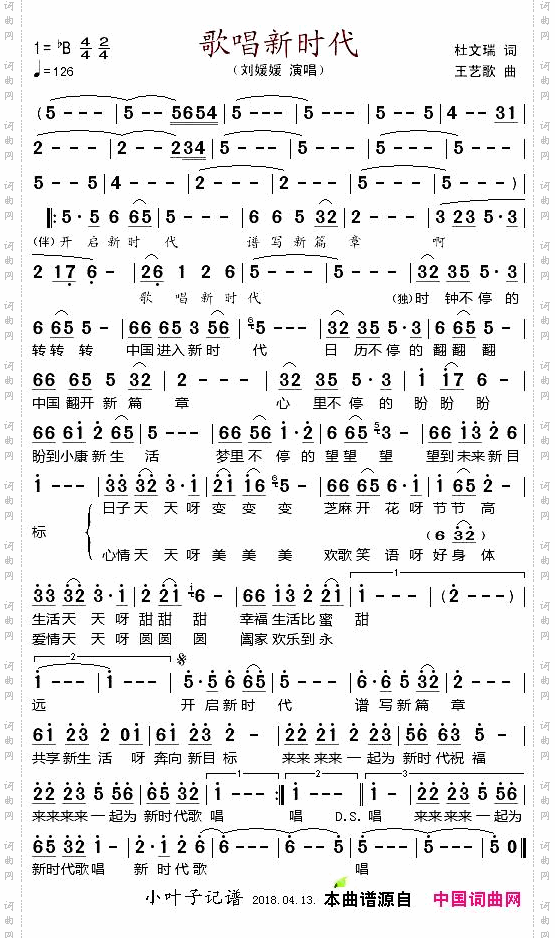 歌唱新时代
1=♭B 4/4 2/4
♩=126
（刘媛媛 演唱）
杜文瑞 词
王艺歌 曲
(5 - - - | 5 - - 5654 | 5 - - - | 5 - - 5 | 4 - - 31 |
2 - - - | 2 - - 234 | 5 - - - | 5 - - - | 5 - - - |
5 - - 5 | 4 - - - | 2 - - - | 2 - - - | 5 - - - | 5 - - - )
‖: 5· 5 6 65 | 5 - - - | 6 6 5 32 | 2 - - - | 3 23 5· 3 |
(伴)开 启 新 时 代 谱 写 新 篇 章 啊
2 17 6 - | 26 1 2 6 | 5 - - - | 5 - - - | 32 35 5· 3 |
歌 唱 新 时 代 (独)时 钟不停 的
6 65 5 - | 66 65 3 56 | 5 - - - | 32 35 5· 3 | 6 65 5 - |
转 转 转 中国进入新时 代 日 历不停 的 翻 翻 翻
66 65 5 32 | 2 - - - | 32 35 5· 3 | 1 17 6 - |
中国翻开新篇 章 心 里不停 的 盼 盼 盼
66 61 2 65 | 5 - - - | 66 56 1· 2 | 6 65 3 - | 66 13 2 6 |
盼到小康新生 活 梦里不 停 的 望 望 望 望到未来新目
1 - - - | 33 32 3· 1 | 21 16 5 - | 66 56 1· 2 | 1 65 2 - |
日子天 天 呀 变 变 变 芝麻开 花 呀 节节 高
标
(6 32)
心情天 天 呀 美 美 美 欢歌笑 语 呀 好身 体
33 32 3· 1 | 2 21 6 - | 66 13 2 21 | 1 - - - | (2 - - - ) |
1
生活天 天 呀 甜 甜 甜 幸福生活比蜜 甜
爱情天 天 呀 圆 圆 圆 阖家欢乐到永
2
1 - - - | 1 - - - | 5· 5 6 65 | 5 - - - | 6· 6 5 32 | 2 - - - |
远 开 启 新 时 代 谱 写 新 篇 章
61 23 2 01 | 61 23 6 - | 22 21 2 61 | 23 63 5 - |
共享新生 活 呀 奔向新目 标 来来来来一起为 新时代祝 福
1 2 3
22 23 5 56 | 65 32 | 1 - - - :‖ 1 - - - ‖ 1 - | 22 23 5 56 |
来来来来一起为 新时代歌 唱 唱 D.S. 唱 来来来来一起为
65 32 1 - | 2· 1 2 6 | 6 - - 5 | 5 - - - | 5 - - - | 5 - 5 0 ‖
新时代歌 唱 新 时 代 歌 唱
小叶子记谱 2018.04.13. 本曲谱源自 中国词曲网
词曲网
词曲网
词曲网
词曲网